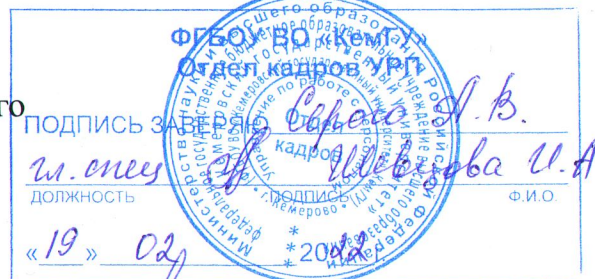 ФГБОУ ВО «КемГУ»
Отдел кадров УРП
го
ПОДПИСЬ ЗАВЕРЯЮ Серого А. В.
гл. спец Шевцова И. А
ДОЛЖНОСТЬ ПОДПИСЬ Ф.И.О.
«19» 02 2022 г.
Отдел
кадров
Министерство науки и высшего образования Российской Федерации
г. Кемерово